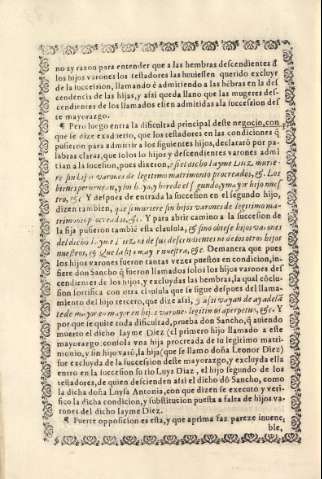 no ay razon para entender que a las hembras descendientes d̃
los hijos varones los testadores las huuiessen querido excluyr
de la succession, llamando é admitiendo a las hẽbras en la des
cendencia de las hijas, y assi queda llano que las mugeres des-
cendientes de los llamados estẽn admitidas a la succession des
te mayorazgo.
¶ Pero luego entra la dificultad principal deste negocio, con
que se dize exadierto, que los testadores en las condiciones q̃
pusieron para admitir a los siguientes hijos, declararõ por pa-
labras claras, que solos los hijos y descendientes varones admi
tian a la succession, pues dixeron, y si el dicho Iayme Luiz, murie-
re sin hijos varones de legitimo matrimonio procreados, &c. Los
bienes peruengan, y sin hijo, y heredo el segundo, y mayor hijo nues-
tro, &c. Y despues de entrada la succession en el segundo hijo,
dizen tambien, y si muriere sin hijos varones de legitimo ma-
trimonio procreados, &c. Y para abrir camino a la succession de
la hija pusieron tambiẽ esta clausula, & sino obiese hijos varones
del dicho Iayme Diez, ni de sus descendientes ni de los otros hijos
nuestros, & Que la hija mayor nuestra, &c. Demanera que pues
los hijos varones fueron tantas vezes puestos en condicion, in-
fiere don Sancho q̃ fueron llamados solos los hijos varones des
cendientes de los hijos, y excluydas las hembras, la qual cõclu-
sion fortifica con otra clausula que se sigue despues del llama-
miento del hijo tercero, que dize assi, y assi vayan de ay adelã
te de mayor en mayor en hijos varones legitimos aperpetuo, &c. Y
por que se quite toda dificultad, prueba don Sancho, q̃ auiendo
muerto el dicho Iayme Diez (el primero hijo llamado a este
mayorazgo) con sola vna hija procreada de su legitimo matri-
monio, y sin hijo varõ, la hija (que se llamo doña Leonor Diez)
fue excluyda de la succession deste mayorazgo, y excluyda ella
entro en la succession su tio Luys Diaz, el hijo segundo de los
testadores, de quien descienden assi el dicho dõ Sancho, como
la dicha doña Luysa Antonia, con que dizen se executo y veri-
fico la dicha condicion, y substitucion puesta a falta de hijos va
rones del dicho Iayme Diez.
¶ Fuerte opposicion es esta, y que a prima faz pareze inuenc,
ble,